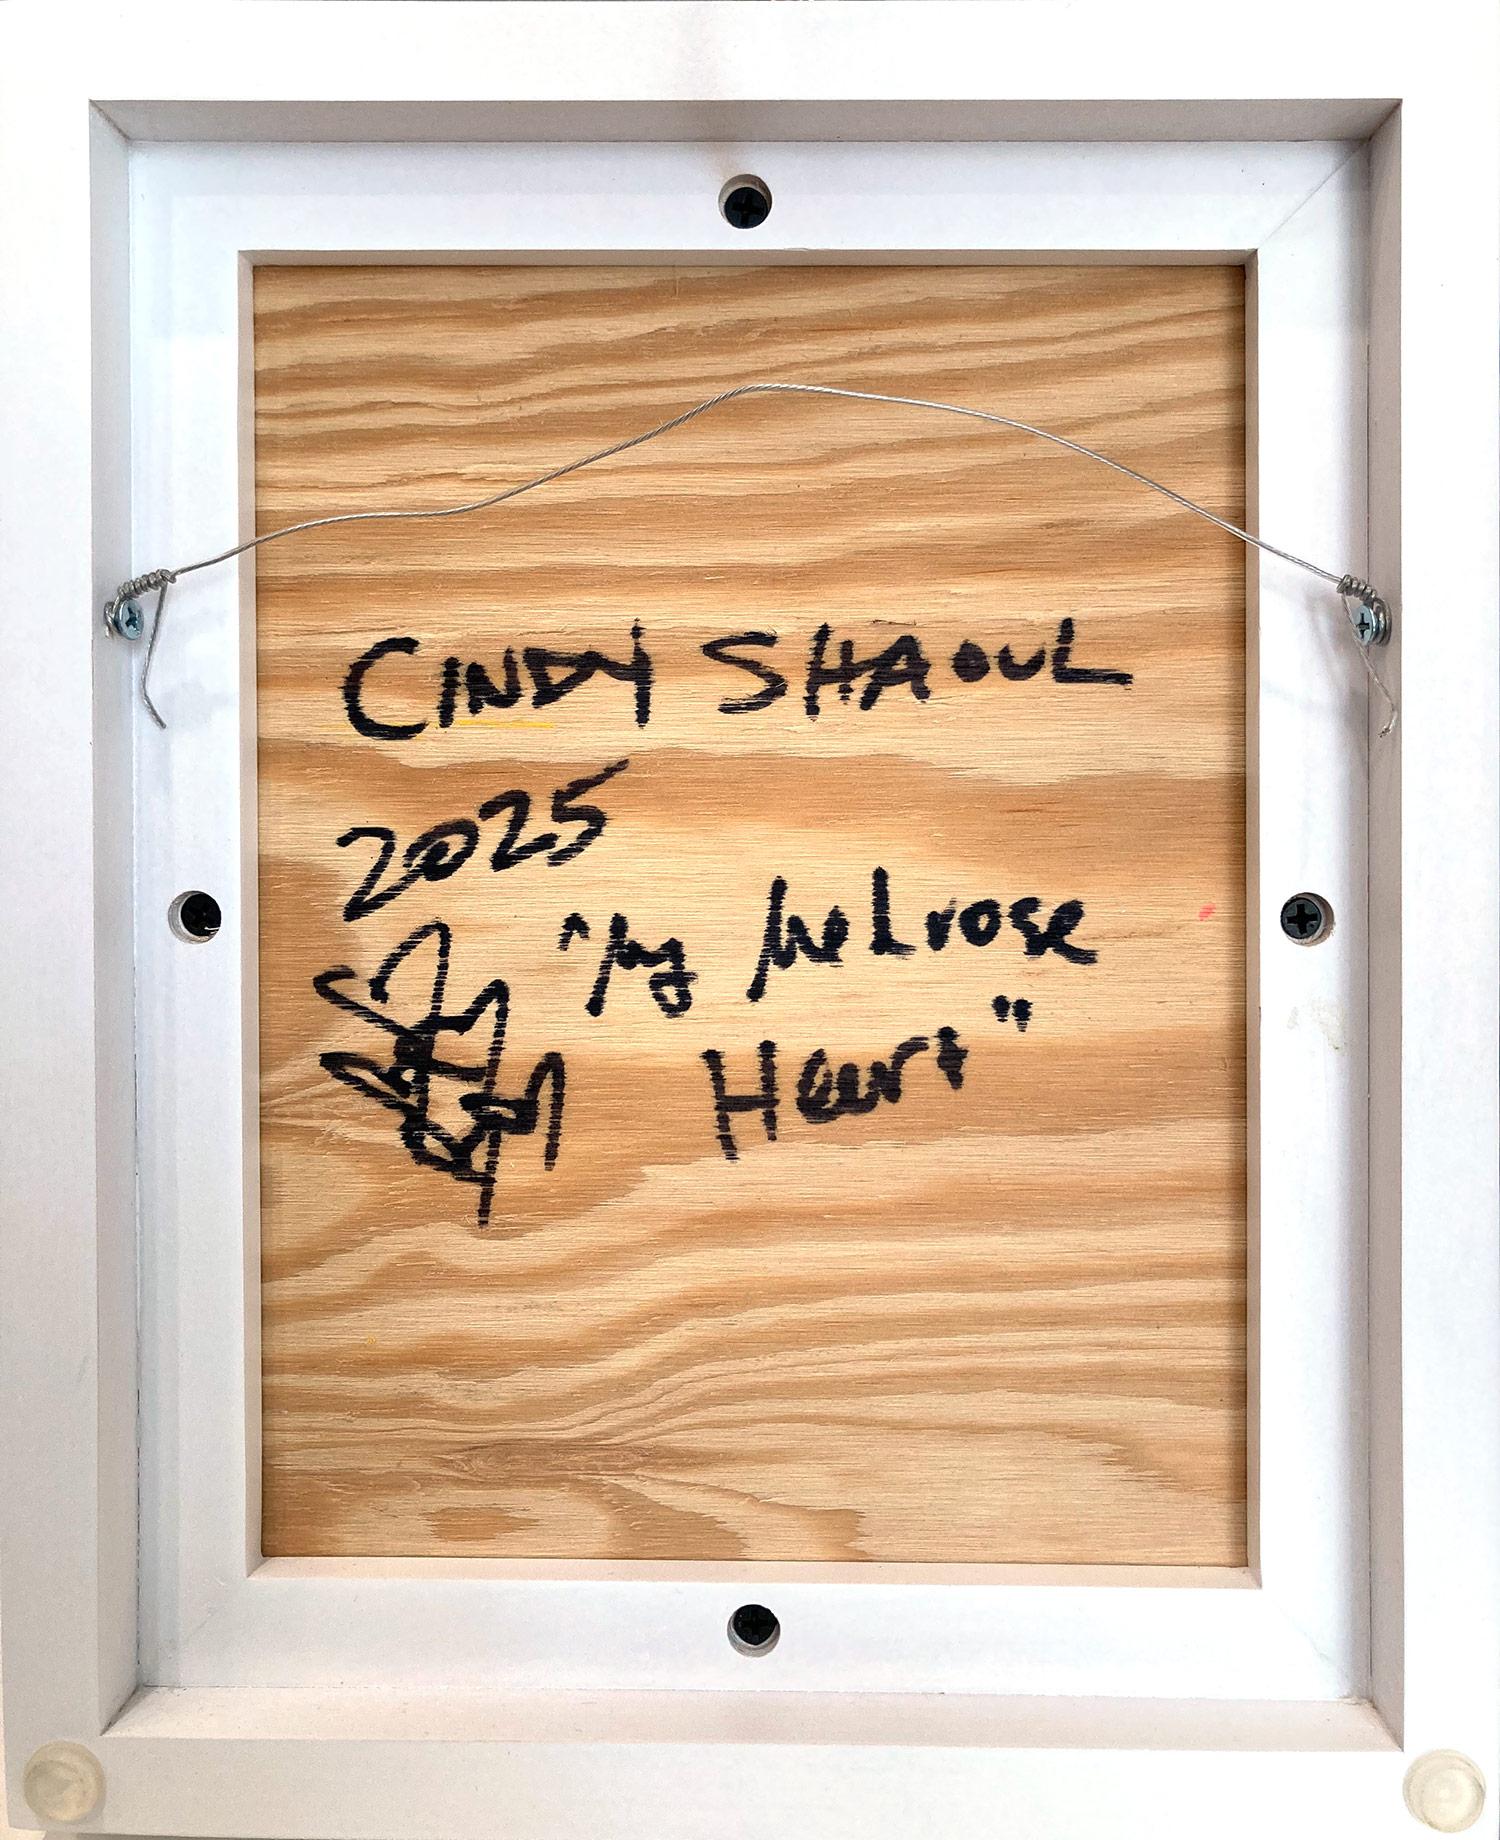 CINDY SHAOUL
2025
"My Melrose
Heart"